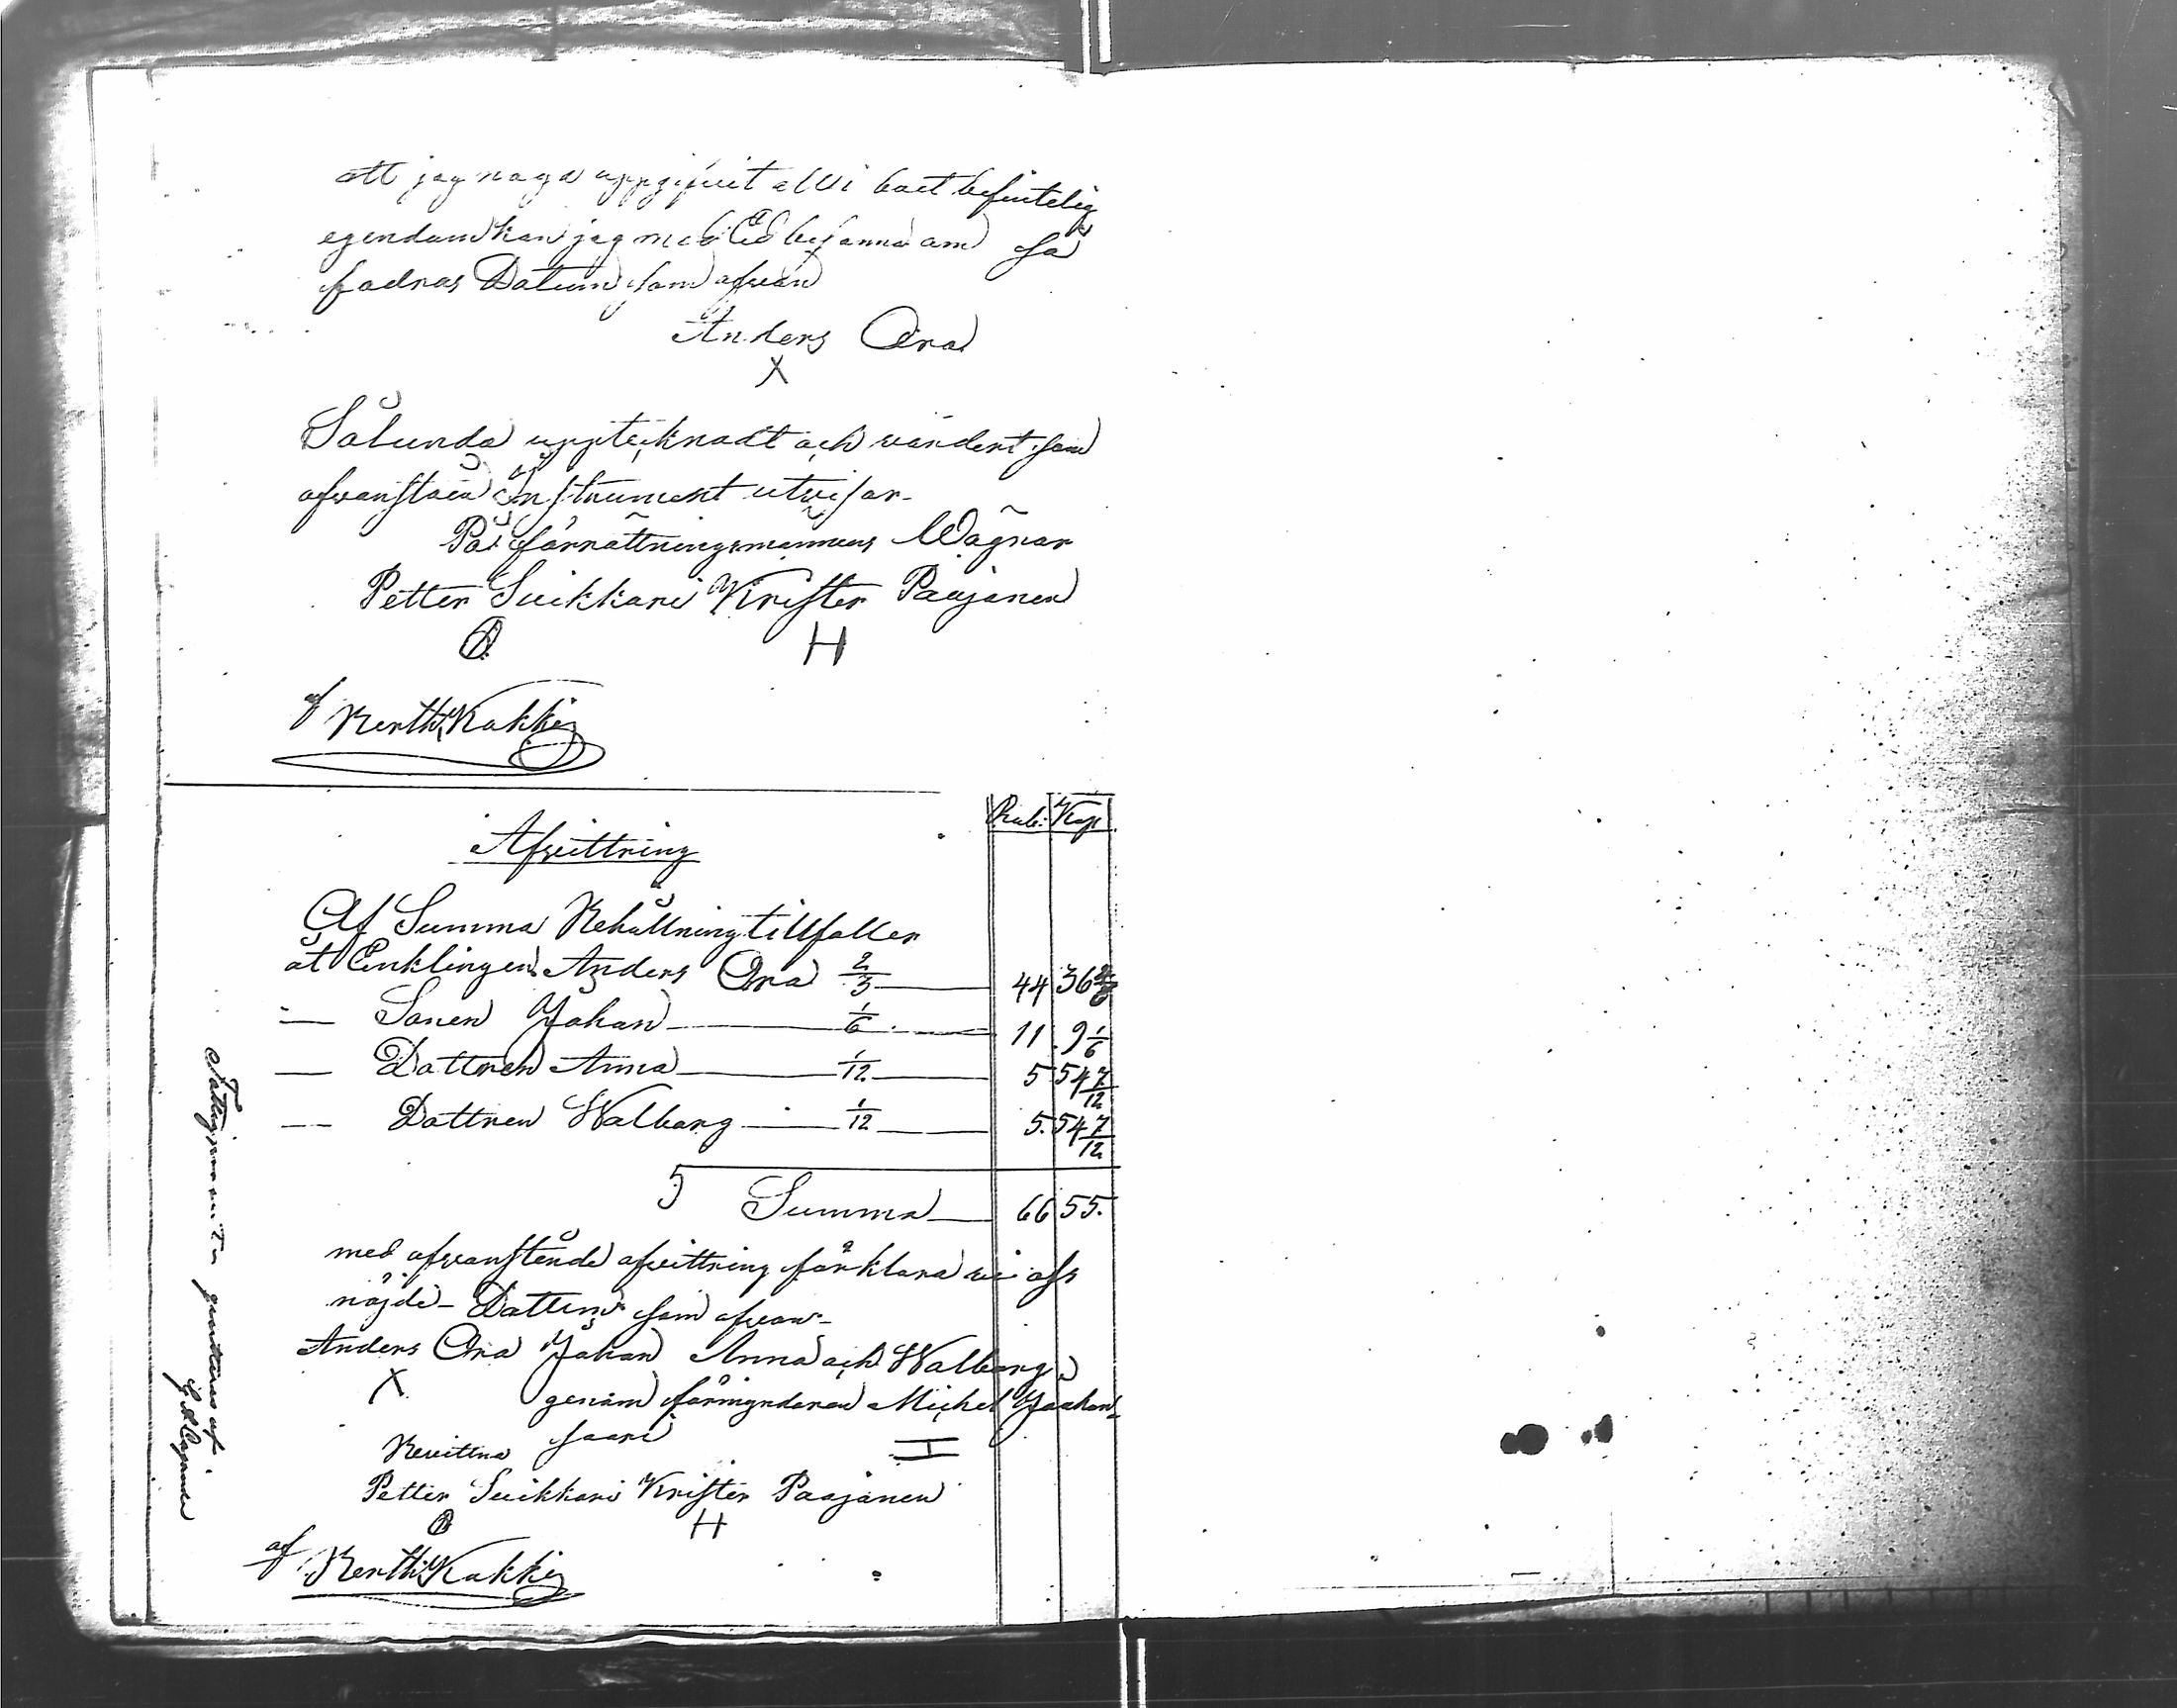 att jag noga uppgifvit all i boet befintelig
egendom kan jag med Ed besanna om så
fodras Datum som afvan
Anders Ora
X
Sålunda upptecknadt och värdert som
afvanstäa Instrument utvisar.
På förrättningsmännens Wägnar
Petter Suikkari Krister Paajanen
H
af Kertti Kukki
Rub: Kop
Afvittring
Af Summa Behållning tillfaller
åt Enklingen Anders Ora 2/3 44 36 4/6
— Sonen Johan 1/6 11. 9 1/6
— Dottren Anna 1/12 5 54 7/12
— Dottren Walborg 1/12 5. 54 7/12
Summa 66 55.
med afvanstende afvittring förklara vi oss
nöjde - Dattum som afvan -
Anders Ora Johan Anna och Walborg
X genom förmyndaren Michel Jaakon
saari
Bevittna
Petter Suikkari Krister Paajanen
H
af Kertti Kukki
af